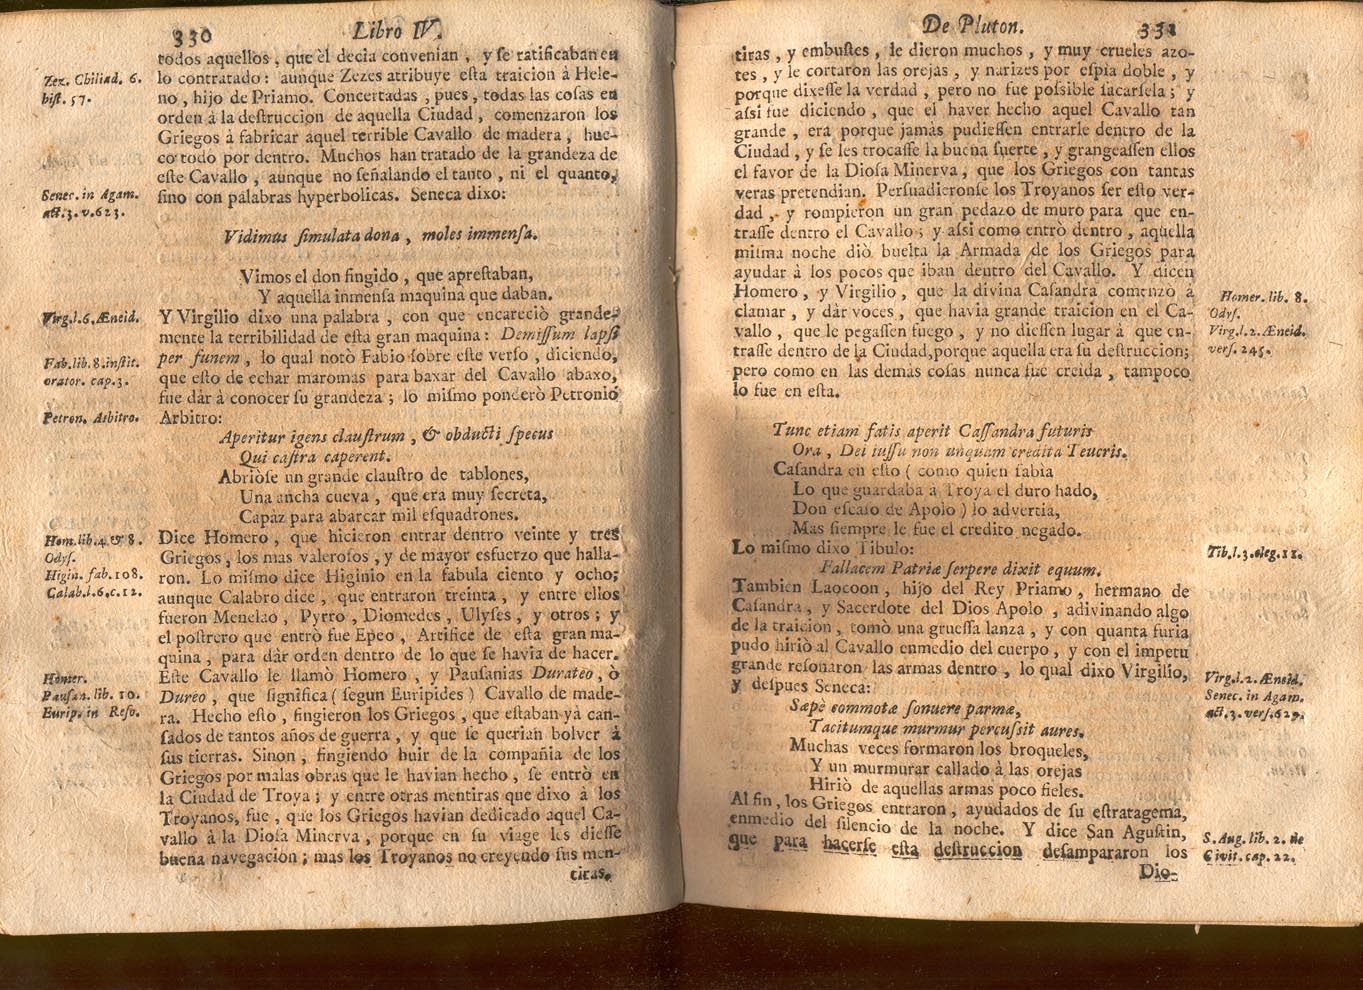 330 Libro IV.
todos aquellos, que èl decia convenian, y ſe ratificaban en
lo contratado: aunque Zezes atribuye eſta traicion à Hele-
no, hijo de Priamo. Concertadas, pues, todas las coſas en
orden à la deſtruccion de aquella Ciudad, comenzaron los
Griegos à fabricar aquel terrible Cavallo de madera, hue-
co todo por dentro. Muchos han tratado de la grandeza de
eſte Cavallo, aunque no ſeñalando el tanto, ni el quanto,
ſino con palabras hyperbolicas. Seneca dixo:
Vidimus ſimulata dona, moles immenſa.
Vimos el don fingido, que apreſtaban,
Y aquella inmenſa maquina que daban.
Y Virgilio dixo una palabra, con que encareciò grande-
mente la terribilidad de eſta gran maquina: Demiſſum lapſi
per funem, lo qual notò Fabio ſobre eſte verſo, diciendo,
que eſto de echar maromas para baxar del Cavallo abaxo,
fue dàr à conocer ſu grandeza; lo miſmo ponderò Petronio
Arbitro:
Aperitur igens clauſtrum, & obducti ſpecus
Qui caſtra caperent.
Abriòſe un grande clauſtro de tablones,
Una ancha cueva, que era muy ſecreta,
Capàz para abarcar mil eſquadrones.
Dice Homero, que hicieron entrar dentro veinte y tres
Griegos, los mas valeroſos, y de mayor esfuerzo que halla-
ron. Lo miſmo dice Higinio en la fabula ciento y ocho;
aunque Calabro dice, que entraron treinta, y entre ellos
fueron Menelao, Pyrro, Diomedes, Ulyſes, y otros; y
el poſtrero que entrò fue Epeo, Artifice de eſta gran ma-
quina, para dàr orden dentro de lo que ſe havia de hacer.
Eſte Cavallo le llamò Homero, y Pauſanias Durateo, ò
Dureo, que ſignifica (ſegun Euripides) Cavallo de made-
ra. Hecho eſto, fingieron los Griegos, que eſtaban yà can-
ſados de tantos años de guerra, y que ſe querian bolver à
ſus tierras. Sinon, fingiendo huir de la compañia de los
Griegos por malas obras que le havian hecho, ſe entrò en
la Ciudad de Troya; y entre otras mentiras que dixo à los
Troyanos, fue, que los Griegos havian dedicado aquel Ca-
vallo à la Dioſa Minerva, porque en ſu viage les dieſſe
buena navegacion; mas los Troyanos no creyendo ſus men-
tiras,
Zez. Chiliad. 6.
hiſt. 57.
Senec. in Agam.
act. 3. v. 623.
Virg. l. 6. Æneid.
Fab. lib. 8. inſtit.
orator. cap. 3.
Petron. Arbitro.
Hom. lib. 4. & 8.
Odyſ.
Higin. fab. 108.
Calab. l. 6. c. 12.
Homer.
Pauſan. lib. 10.
Eurip. in Reſo.
De Pluton. 331
tiras, y embuſtes, le dieron muchos, y muy crueles azo-
tes, y le cortaron las orejas, y narizes por eſpia doble, y
porque dixeſſe la verdad, pero no fue poſsible ſacarſela; y
aſsi fue diciendo, que el haver hecho aquel Cavallo tan
grande, era porque jamàs pudieſſen entrarle dentro de la
Ciudad, y ſe les trocaſſe la buena ſuerte, y grangeaſſen ellos
el favor de la Dioſa Minerva, que los Griegos con tantas
veras pretendian. Perſuadieronſe los Troyanos ſer eſto ver-
dad, y rompieron un gran pedazo de muro para que en-
traſſe dentro el Cavallo; y aſsi como entrò dentro, aquella
miſma noche diò buelta la Armada de los Griegos para
ayudar à los pocos que iban dentro del Cavallo. Y dicen
Homero, y Virgilio, que la divina Caſandra comenzò à
clamar, y dàr voces, que havia grande traicion en el Ca-
vallo, que le pegaſſen fuego, y no dieſſen lugar à que en-
traſſe dentro de la Ciudad, porque aquella era ſu deſtruccion;
pero como en las demàs coſas nunca fue creida, tampoco
lo fue en eſta.
Tunc etiam fatis aperit Caſſandra futuris
Ora, Dei iuſſu non unquam credita Teucris.
Caſandra en eſto (como quien ſabia
Lo que guardaba a Troya el duro hado,
Don eſcaſo de Apolo) lo advertia,
Mas ſiempre le fue el credito negado.
Lo miſmo dixo Tibulo:
Fallacem Patriæ ſerpere dixit equum.
Tambien Laocoon, hijo del Rey Priamo, hermano de
Caſandra, y Sacerdote del Dios Apolo, adivinando algo
de la traicion, tomò una grueſſa lanza, y con quanta furia
pudo hiriò al Cavallo enmedio del cuerpo, y con el impetu
grande reſonaron las armas dentro, lo qual dixo Virgilio,
y deſpues Seneca:
Sæpè commotæ ſonuere parmæ,
Tacitumque murmur percuſsit aures.
Muchas veces formaron los broqueles,
Y un murmurar callado à las orejas
Hiriò de aquellas armas poco fieles.
Al fin, los Griegos entraron, ayudados de ſu eſtratagema,
enmedio del ſilencio de la noche. Y dice San Aguſtin,
que para hacerſe eſta deſtruccion deſampararon los
Dio-
Homer. lib. 8.
Odyſ.
Virg. l. 2. Æneid.
verſ. 245.
Tib. l. 3. eleg. 11.
Virg. l. 2. Æneid.
Senec. in Agam.
act. 3. verſ. 629.
S. Aug. lib. 2. de
Civit. cap. 22.